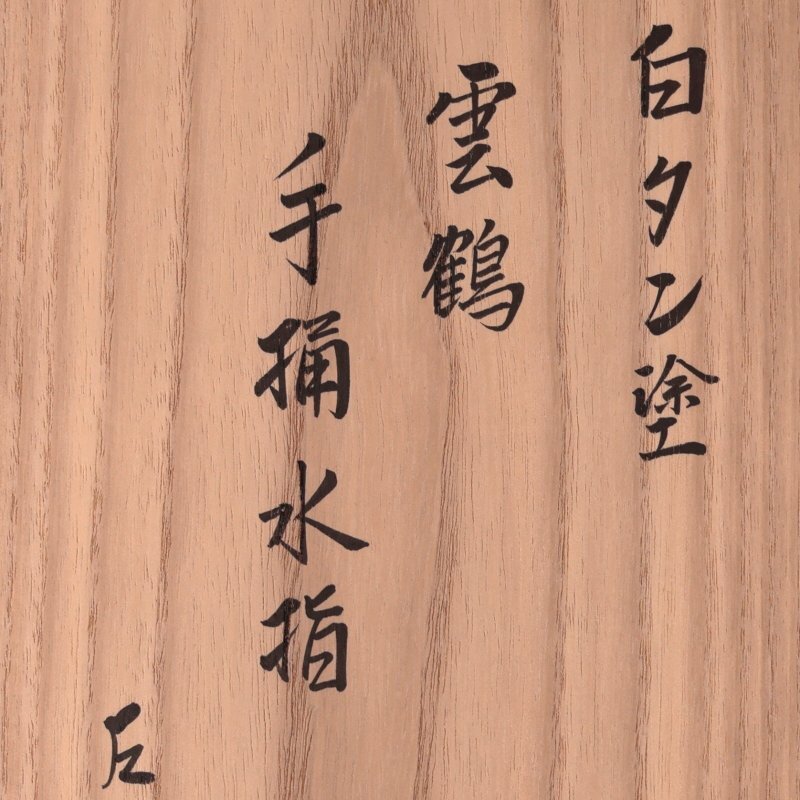 白タン塗
雲鶴
手桶水指